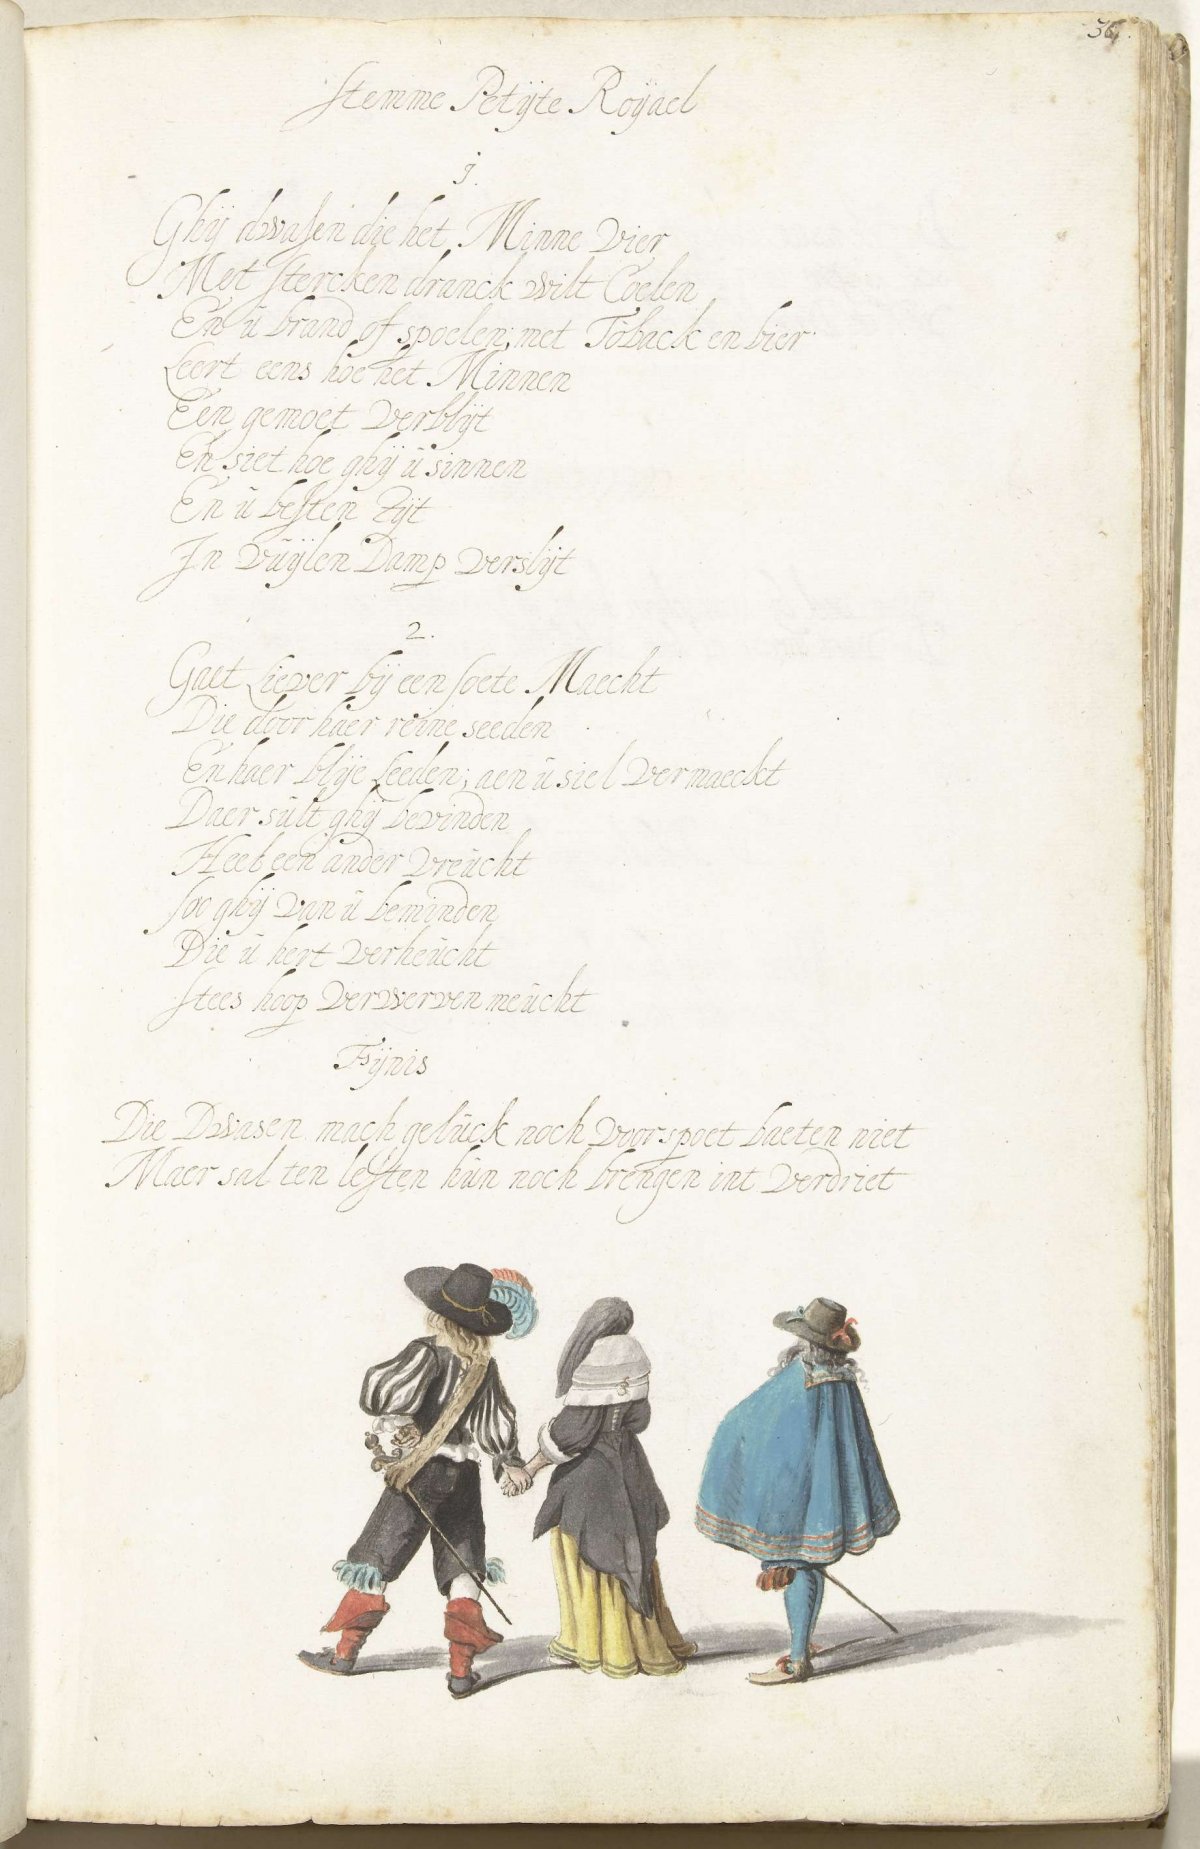 36.
Stemme Petÿte Roÿael
1.
Ghÿ dwasen die het Minne Vier
Met stercken dranck wilt Coelen
En ü brand of spoelen; met Toback en bier
Leert eens hoe het Minnen
Een gemoet Verblÿt
En siet hoe ghÿ ü sinnen
En ü besten Zÿt
In Vüÿlen Damp verslÿt
2.
Gaet Liever bÿ een soete Maecht
Die door haer reine seeden
En haer blÿe Leeden; aen ü siel Vermaeckt
Daer sült ghÿ bevinden
Heel een ander Vreücht
soo ghÿ Van ü beminden
Die ü hert Verheücht
stees hoop Verwerven meücht
Fÿnis
Die Dwasen mach gelück noch Voorspoet baeten niet
Maer sal ten lesten hün noch brengen int Verdriet